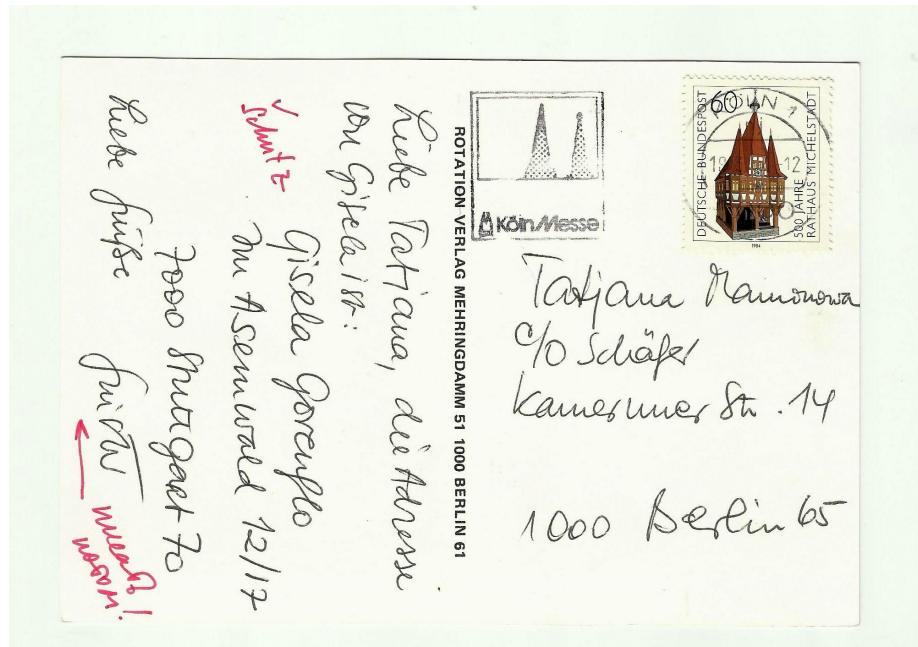 Liebe Tatjana, die Adresse
von Gisela ist:
Gisela Gorenflo
Im Asemwald 12/17
7000 Stuttgart 70
Liebe Grüße
✓ Schutz
писать!
ROTATION-VERLAG MEHRINGDAMM 51 1000 BERLIN 61
Köln/Messe
60
DEUTSCHE BUNDESPOST
500 JAHRE
RATHAUS MICHELSTADT
1984
KÖLN
Tatjana Mamonowa
c/o Schäfer
Kameruner Str. 14
1000 Berlin 65